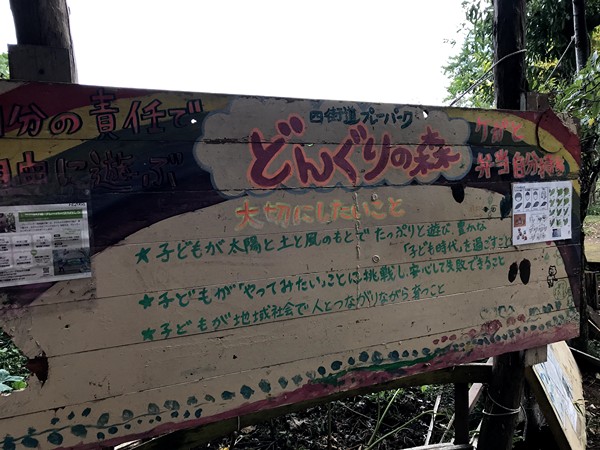 四街道プレーパーク
どんぐりの森
自分の責任で
自由に遊ぶ
ケガと
弁当自分
大切にしたいこと
★子どもが太陽と土と風のもとでたっぷりと遊び、豊かな
「子ども時代」を過ごすこと
★子どもが「やってみたい」ことに挑戦し、安心して失敗できること
★子どもが地域社会で人とつながりながら育つこと